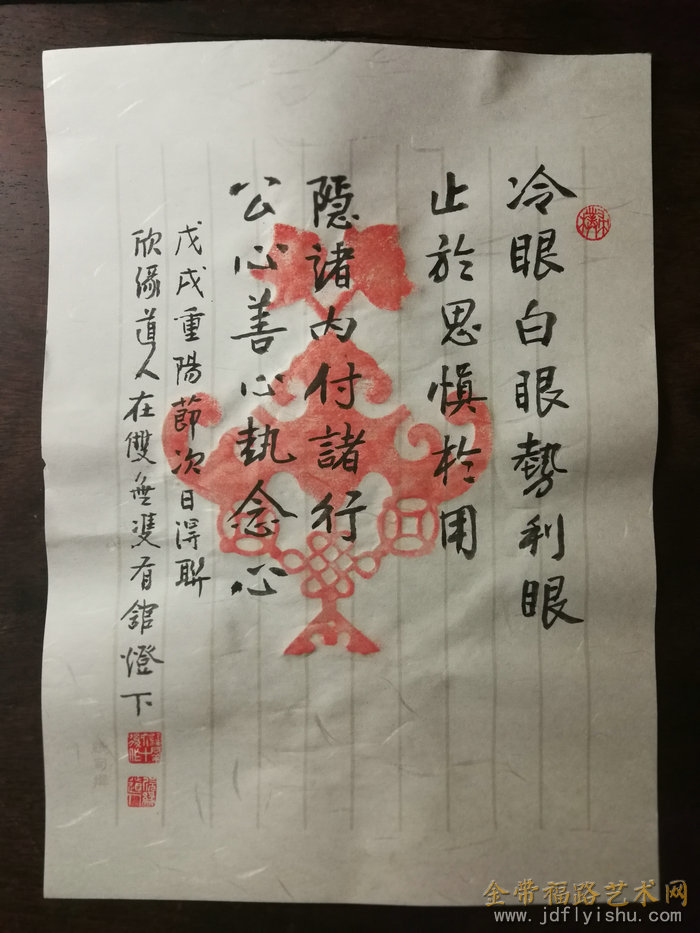 冷眼白眼勢利眼
止於思慎於用
隱諸內付諸行
公心善心執念心
戊戌重陽節次日得聯
欣緣道人在雙無雙有舘燈下
金带福路艺术网
www.jdflyishu.com